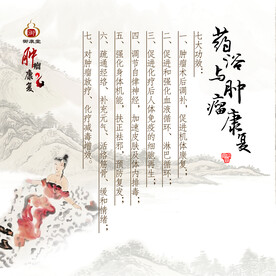 药浴与肿瘤康复
七大功效：
一、肿瘤术后调补，促进机体康复；
二、促进和强化血液循环、淋巴循环；
三、促进化疗后人体免疫的细胞再生；
四、调节自律神经，加速皮肤及体内排毒；
五、强化身体机能，扶正祛邪，预防复发；
六、疏通经络、补充元气、活络筋骨、缓和情绪；
七、对肿瘤放疗、化疗减毒增效。
御康堂
肿瘤康复